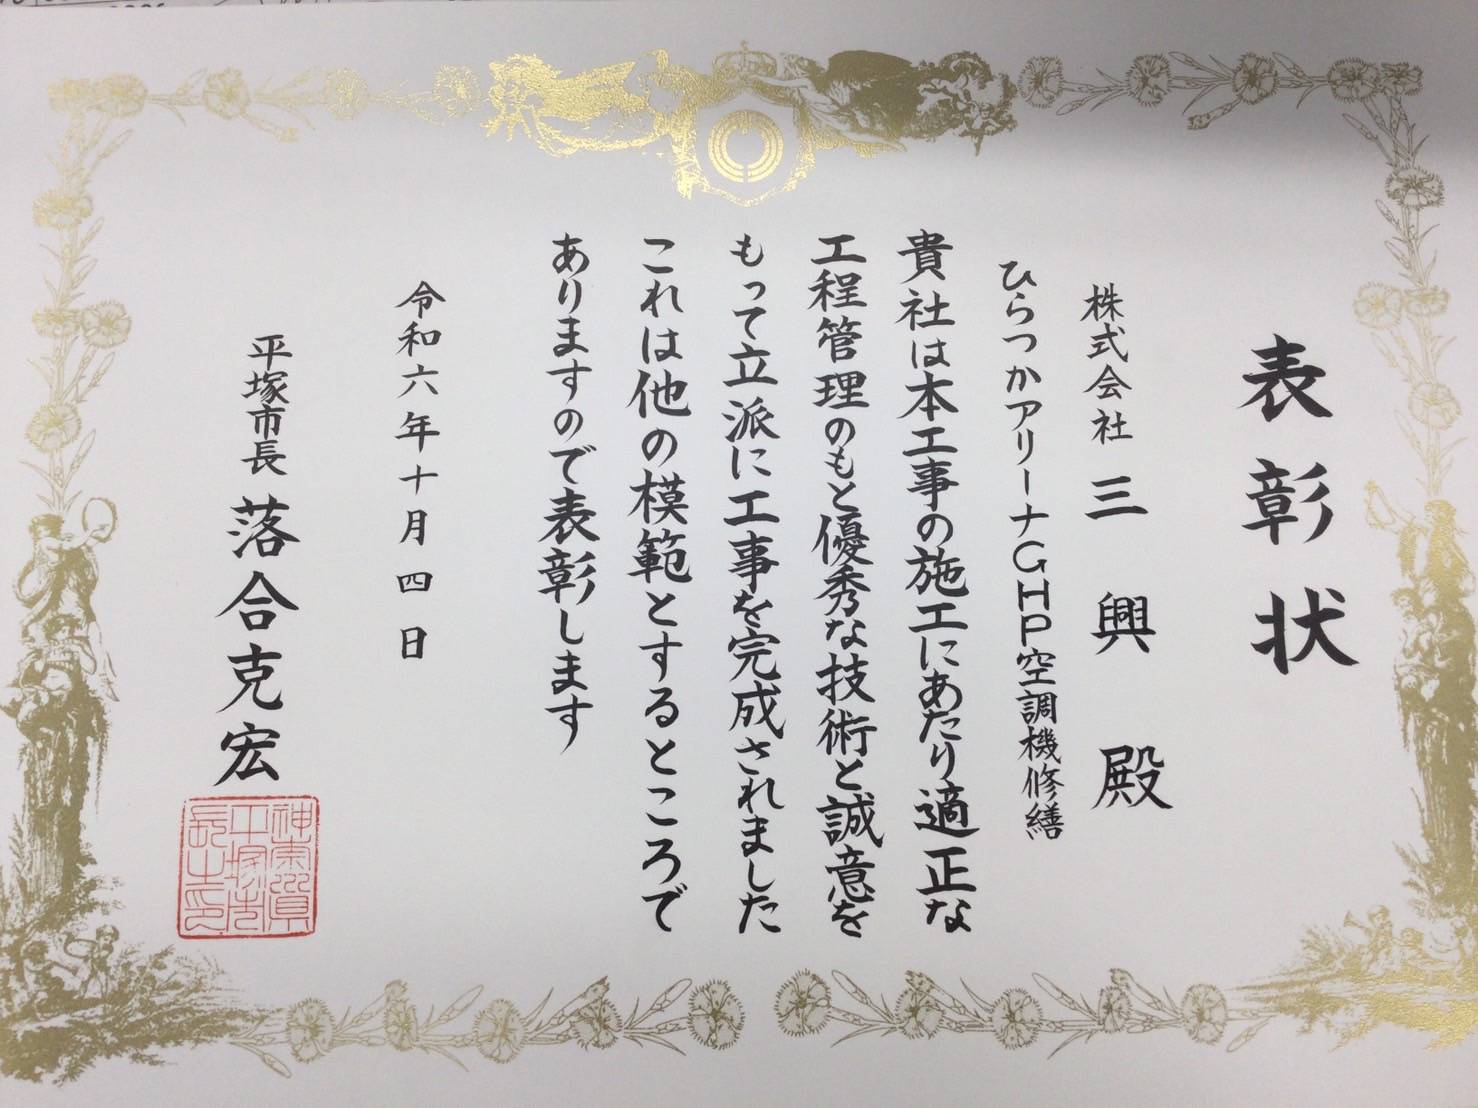 表彰状
株式会社 三興 殿
ひらつかアリーナGHP空調機修繕
貴社は本工事の施工にあたり適正な
工程管理のもと優秀な技術と誠意を
もって立派に工事を完成されました
これは他の模範とするところで
ありますので表彰します
令和六年十月四日
平塚市長 落合克宏
神奈川県
平塚市
長之印